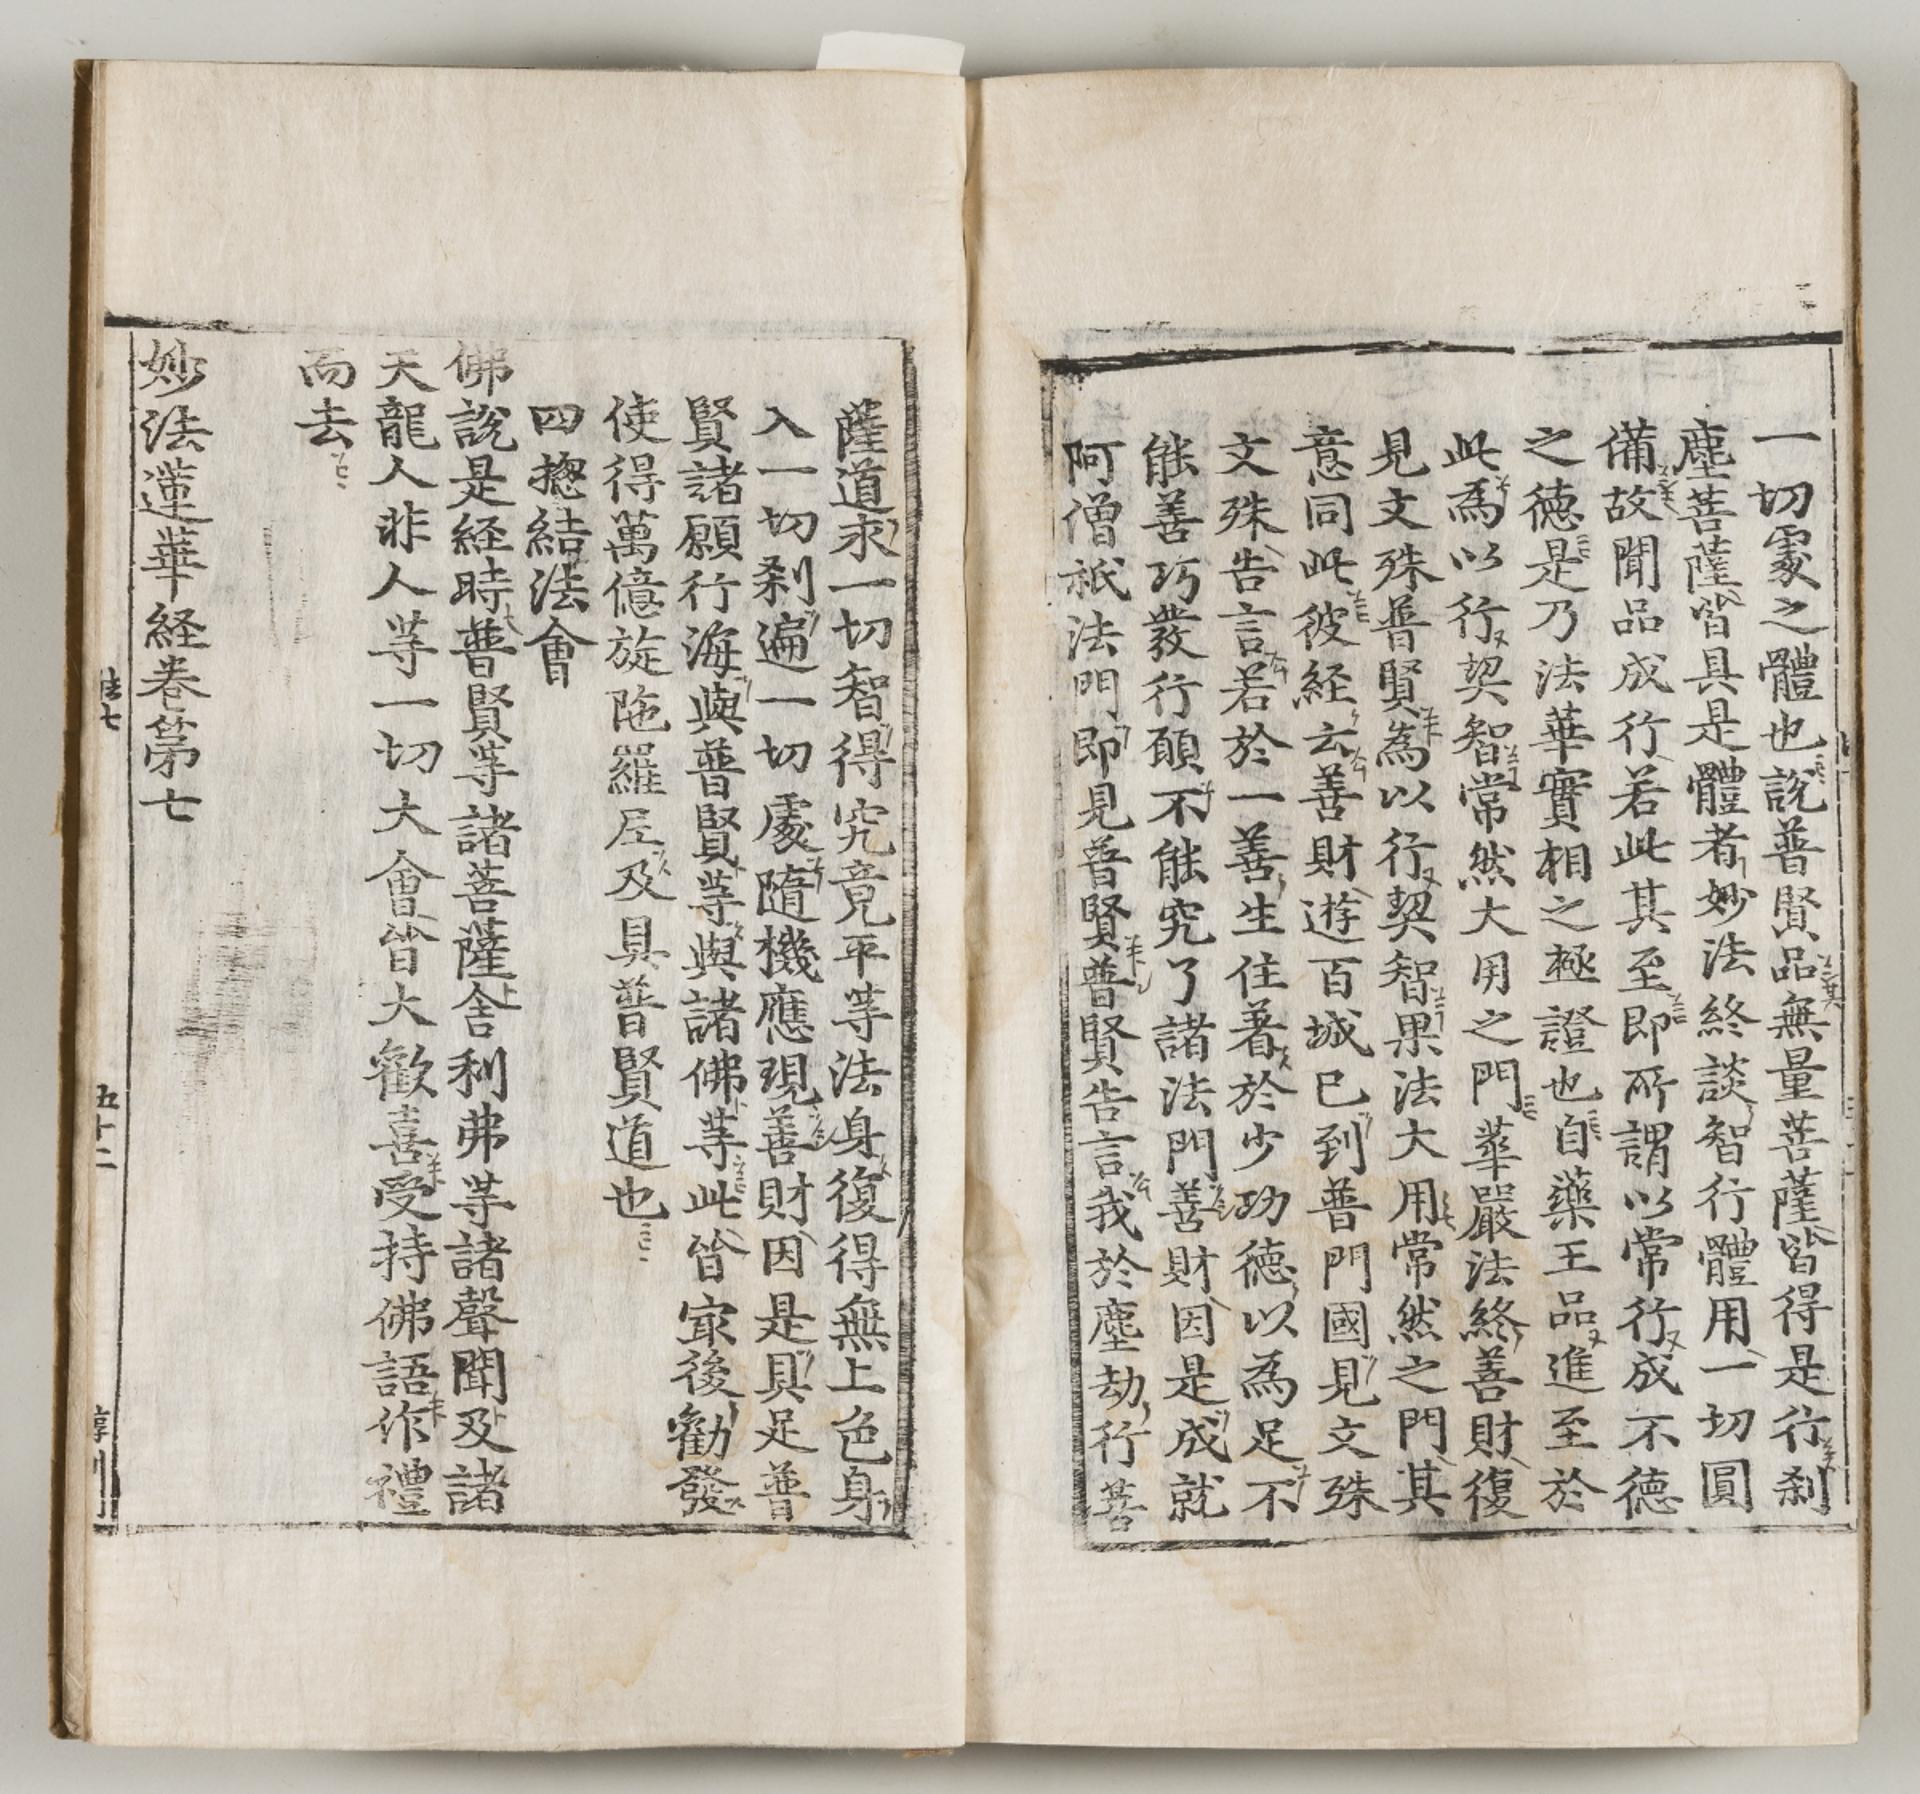 一切處之體也說普賢品無量菩薩皆得是行刹
塵菩薩皆具是體者妙法終談智行體用一切圓
備故聞品成行若此其至即所謂以常行成不德
之德是乃法華實相之極證也自藥王品進至於
此為以行契智常然大用之門華嚴法終善財復
見文殊普賢為以行契智果法大用常然之門其
意同此彼経云善財遊百城已到普門國見文殊
文殊告言若於一善生住著於少功德以為足不
能善巧發行願不能究了諸法門善財因是成就
阿僧祇法門即見普賢普賢告言我於塵劫行菩
薩道求一切智得究竟平等法身復得無上色身
入一切刹遍一切處隨機應現善財因是具足普
賢諸願行海與普賢等與諸佛等此皆㝡後勸發
使得萬億旋陁羅尼及具普賢道也
四揔結法會
佛說是経時普賢等諸菩薩舍利弗等諸聲聞及諸
天龍人非人等一切大會皆大歡喜受持佛語作禮
而去
妙法蓮華経卷第七
法七
五十二